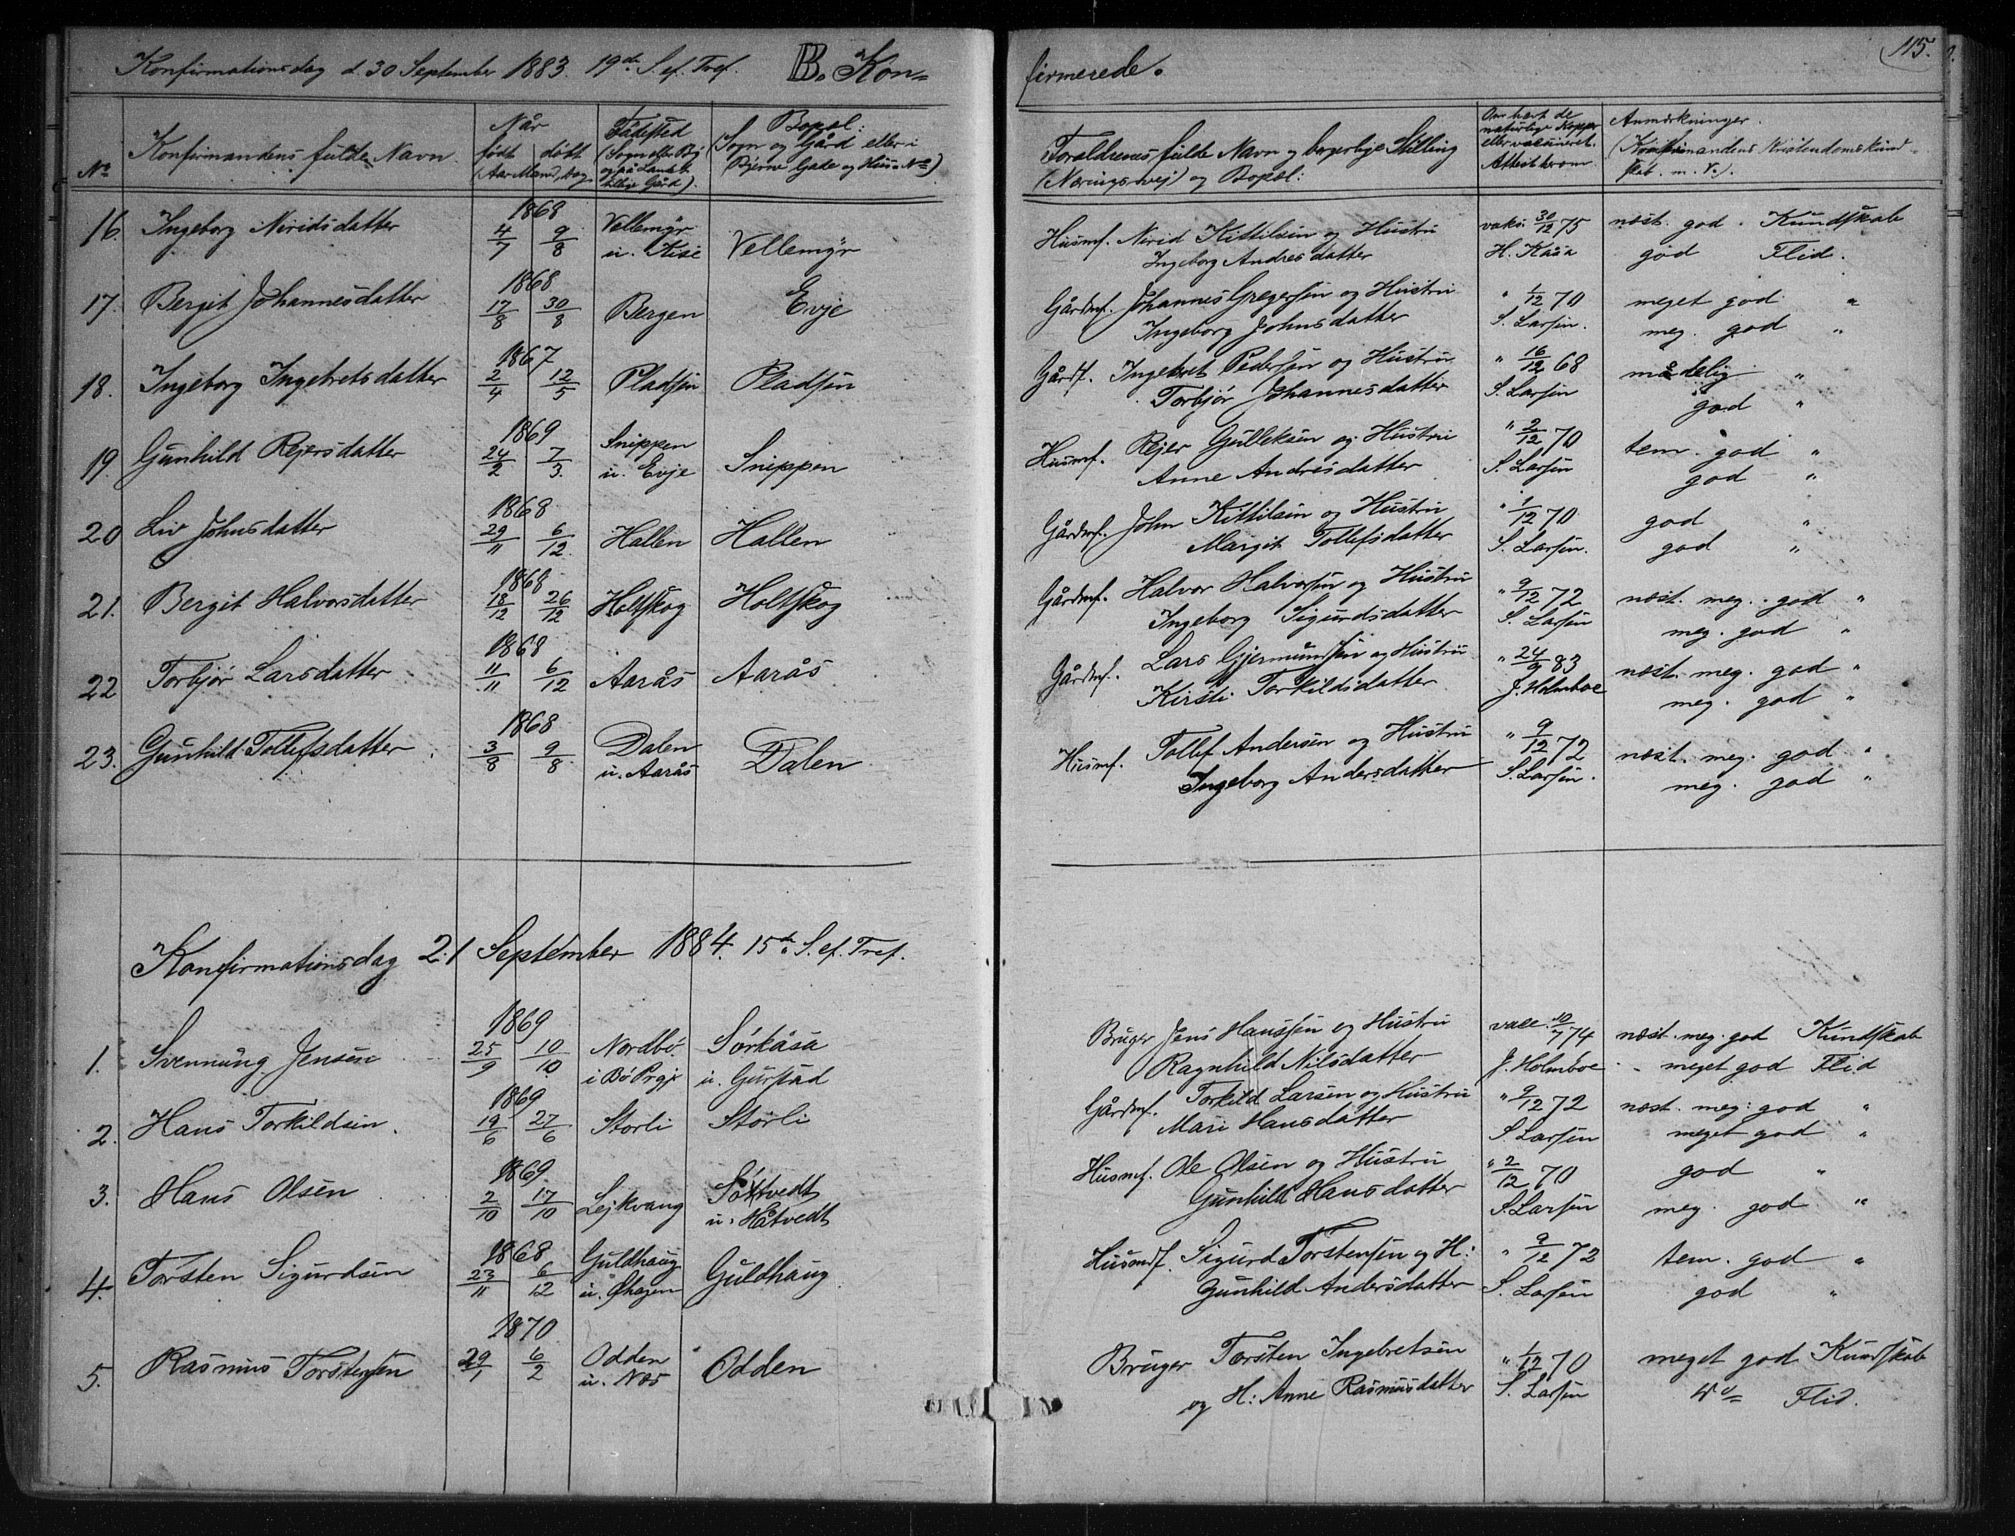 Konfirmationsdag d. 30 September 1883. 19de S. ef. Tref. B. Kon=
firmerede.
115.
No
Konfirmandens fulde Navn.
Når
født
døbt
(Aar, Maaned, Dag)
Fødested
(Sogn eller By
og på Landet
tillige Gård).
Bopæl:
(Sogn og Gård eller i
Byerne Gade og Huus-No)
Forældrenes fulde Navn og borgerlige Stilling
(Næringsvej) og Bopæl:
Om havt de
naturlige Kopper
eller vaksineret.
Attest herom
Anmærkninger.
(Konfirmandens Kristendomskund-
skab. m. V.).
16. Ingeborg Neridsdatter 1868 4/7 9/8 Vellemyr u. Kise Vellemyr
Husmf. Nerid Kittilsen og Hustru vaks. 30/12 75 næst. god. Kundskab
Ingeborg Andresdatter H. Kåsa god Flid.
17. Bergit Johannesdatter 1868 17/8 30/8 Bergen Evje
Gårdmf. Johannes Gregersen og Hustru " 1/12 70 meget god "
Ingeborg Johnsdatter S. Larsen. meg. god "
18. Ingeborg Ingebretsdatter 1867 2/4 12/5 Pladsen Pladsen
Gårdf. Ingebret Pedersen og Hustru " 16/12 68 mådelig "
Torbjør Johannesdatter S. Larsen god "
19. Gunhild Rejersdatter 1869 24/2 7/3. Snippen u. Evje Snippen
Husmf. Rejer Gulleksen og Hustru " 2/12 70 tem. god "
Anne Andresdatter S. Larsen god "
20 Liv Johnsdatter 1868 29/11 6/12 Hallen Hallen
Gårdmf. John Kittilsen og Hustru " 1/12 70 god "
Margit Tollefsdatter S. Larsen. god "
21. Bergit Halvorsdatter 1868 13/12 26/12 Holtskog Holtskog
Gårdmf. Halvor Halvorsen og Hustru " 9/12 72 næst. meg. god "
Ingeborg Sigurdsdatter S. Larsen meg. god "
22 Torbjør Larsdatter 1868 11/11 6/12 Aarås Aarås
Gårdmf. Lars Gjermundsen og Hustru " 24/9 83 næst. meg. god "
Kirsti Torkildsdatter J. Holmboe meg. god "
23. Gunhild Tollefsdatter 1868 3/8 9/8 Dalen u. Aarås Dalen
Husmf. Tollef Andersen og Hustru " 9/12 72 næst. meg. god "
Ingeborg Andersdatter S. Larsen. meg. god "
Konfirmationsdag 21 September 1884. 15de S. ef. Tref.
1. Svennung Jensen 1869 25/9 10/10 Nordbø i Bø Prgj. Sørkåsa u. Gurstad
Bruger Jens Hanssen og Hustru vacc. 10/7 74 næst. meg. god Kundskab
Ragnhild Nilsdatter J. Holmboe meget god Flid
2. Hans Torkildsen. 1869 19/6 27/6 Storli Storli
Gårdmf. Torkild Larsen og Hustru " 9/12 72 næst. meg. god "
Mari Hansdatter S Larsen meget god "
3. Hans Olsen 1869 2/10 17/10 Lejkvang u. Håtvedt
Husmf. Ole Olsen og Hustru " 2/12 70 god "
Gunhild Hansdatter S. Larsen meg. god "
4. Torsten Sigurdsen 1868 23/11 6/12 Guldhaug u. Øhagen Guldhaug
Husmf. Sigurd Torstensen og H: " 9/12 72 tem. god "
Gunhild Andersdatter S. Larsen god "
5. Rasmus Torstensen 1870 29/1 6/2 Odden u. Næs Odden
Bruger Torsten Ingebretsen " 1/12 70 meget god Kundskab
og H: Anne Rasmusdatter S. Larsen do Flid.